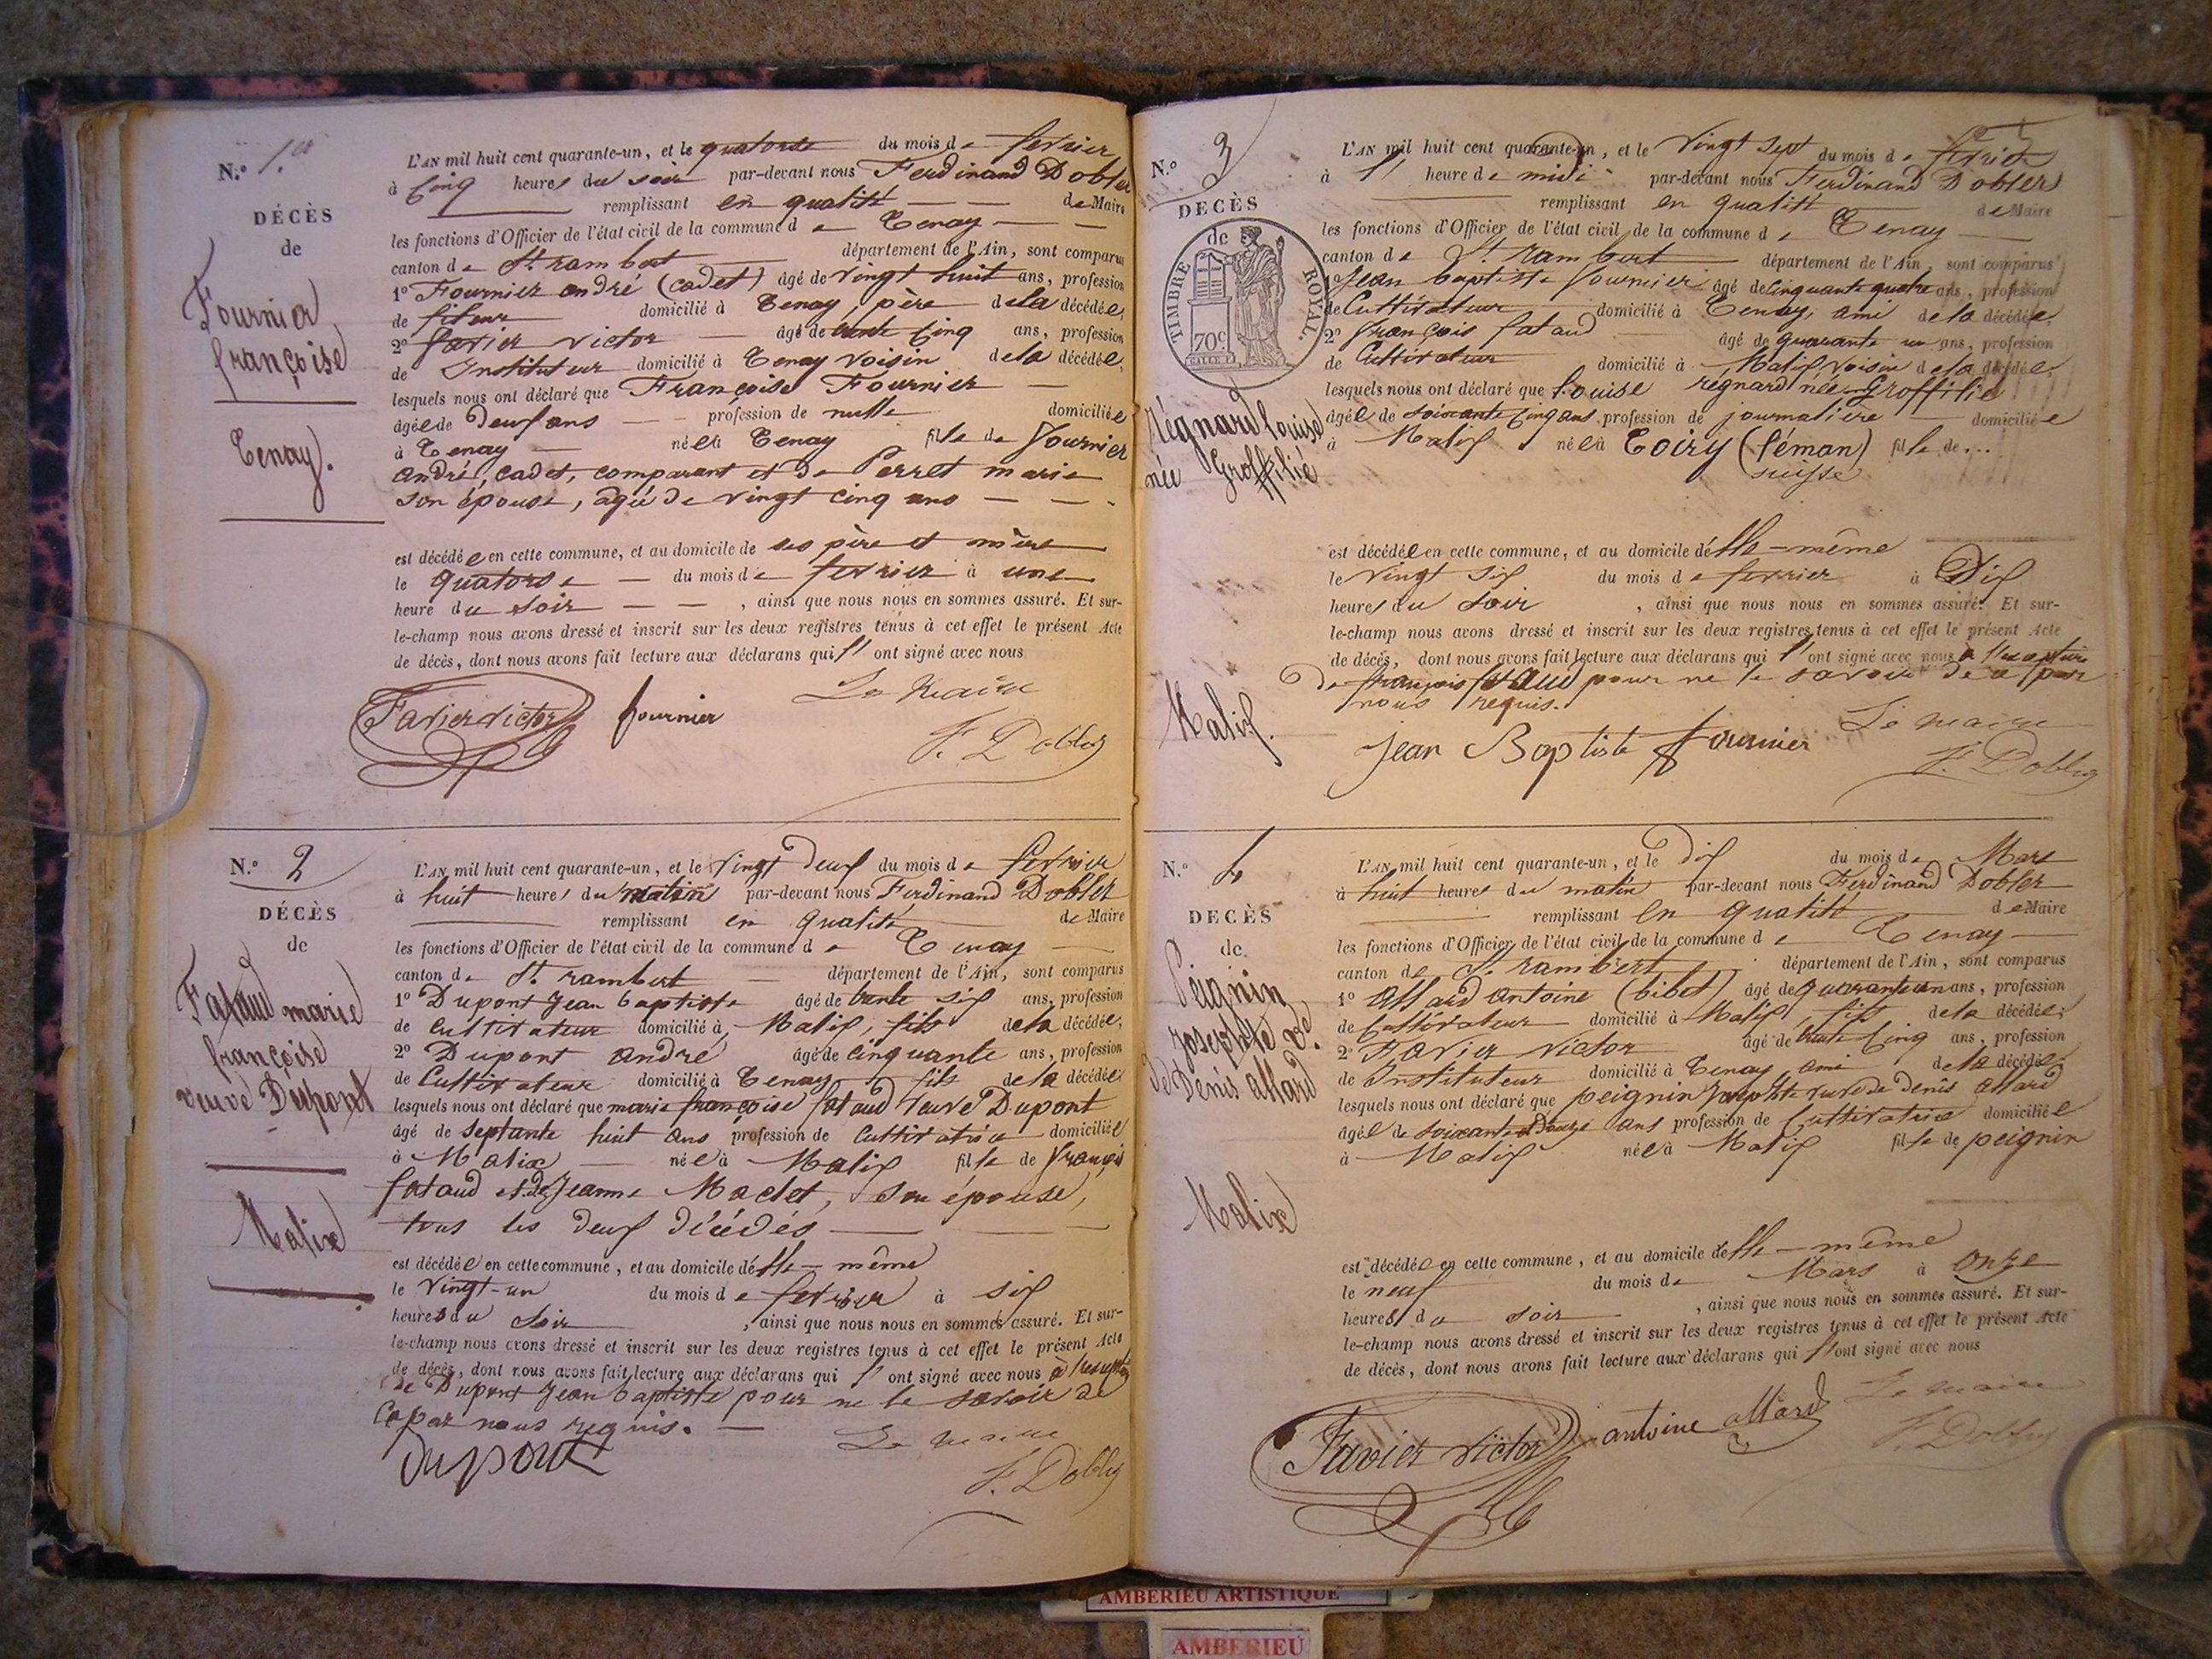 N.º 1.er
DÉCÈS
de
Fournier
françoise
Tenay.
L'AN mil huit cent quarante-un, et le quatorze du mois de fevrier
à Cinq heures du soir par-devant nous Ferdinand Dobler
remplissant en qualité de Maire
les fonctions d'Officier de l'état civil de la commune de Tenay
canton de St. rambert département de l'Ain, sont comparus
1º Fournier andré (cadet) âgé de vingt huit ans, profession
de fileur domicilié à Tenay, père de la décédée,
2º favier victor âgé de trente cinq ans, profession
de Instituteur domicilié à Tenay voisin de la décédée,
lesquels nous ont déclaré que Françoise Fournier
âgée de deux ans profession de nulle domiciliée
à Tenay née à Tenay fille de Fournier
andré, cadet, comparant et de Perret marie
son épouse, agée de vingt cinq ans
est décédée en cette commune, et au domicile de ses père et mère
le quatorze du mois de fevrier à une
heure du soir, ainsi que nous nous en sommes assuré. Et sur-
le-champ nous avons dressé et inscrit sur les deux registres tenus à cet effet le présent Acte
de décès, dont nous avons fait lecture aux déclarans qui l'ont signé avec nous
Favier victor fournier Le Maire
F. Dobler
N.º 2
DÉCÈS
de
Fataud marie
françoise
veuve Dupont
Malix
L'AN mil huit cent quarante-un, et le vingt deux du mois de fevrier
à huit heures du matin par-devant nous Ferdinand Dobler
remplissant en qualité de Maire
les fonctions d'Officier de l'état civil de la commune de Tenay
canton de St. rambert département de l'Ain, sont comparus
1º Dupont Jean baptiste âgé de trente six ans, profession
de Cultivateur domicilié à Malix, fils de la décédée,
2º Dupont andré âgé de cinquante ans, profession
de Cultivateur domicilié à Tenay fils de la décédée
lesquels nous ont déclaré que marie françoise fataud veuve Dupont
âgé de septante huit ans profession de Cultivatrice domiciliée
à Malix née à Malix fille de françois
fataud et de Jeanne Maclet, son épouse,
tous les deux décédés
est décédée en cette commune, et au domicile d'elle-même
le vingt-un du mois de fevrier à six
heures du soir, ainsi que nous nous en sommes assuré. Et sur-
le-champ nous avons dressé et inscrit sur les deux registres tenus à cet effet le présent Acte
de décès, dont nous avons fait lecture aux déclarans qui l'ont signé avec nous à
de Dupont Jean baptiste pour ne le savoir de
ce par nous requis.
dupont Le Maire
F. Dobler
N.º 3
DÉCÈS
de
TIMBRE ROYAL.
70c.
Régnard louise
née Groffilié
Malix.
L'AN mil huit cent quarante-un, et le vingt sept du mois de fevrier
à l' heure de midi par-devant nous Ferdinand Dobler
remplissant en qualité de Maire
les fonctions d'Officier de l'état civil de la commune de Tenay
canton de St. rambert département de l'Ain, sont comparus
1º Jean baptiste fournier âgé de cinquante quatre ans, profession
de Cultivateur domicilié à Tenay, ami de la décédée,
2º françois fataud âgé de quarante un ans, profession
de Cultivateur domicilié à Malix, voisin de la décédée,
lesquels nous ont déclaré que louise régnard née Groffilié
âgée de soixante cinq ans profession de journalière domiciliée
à Malix née à Toiry (léman) fille de...
suisse
est décédée en cette commune, et au domicile d'elle-même
le vingt six du mois de fevrier à Dix
heures du soir, ainsi que nous nous en sommes assuré. Et sur-
le-champ nous avons dressé et inscrit sur les deux registres tenus à cet effet le présent Acte
de décès, dont nous avons fait lecture aux déclarans qui l'ont signé avec nous à
de françois fataud pour ne le savoir de ce par
nous requis.
Jean Baptiste fournier Le Maire
F. Dobler
N.º 4
DÉCÈS
de
Peignin
Josephte ve.
de Denis allard
Malix
L'AN mil huit cent quarante-un, et le dix du mois de Mars
à huit heures du matin par-devant nous Ferdinand Dobler
remplissant en qualité de Maire
les fonctions d'Officier de l'état civil de la commune de Tenay
canton de St. rambert département de l'Ain, sont comparus
1º allard antoine (bibet) âgé de quarante un ans, profession
de Cultivateur domicilié à Malix, fils de la décédée;
2º Favier victor âgé de trente cinq ans, profession
de Instituteur domicilié à Tenay ami de la décédée
lesquels nous ont déclaré que peignin Josephte veuve de denis allard
âgée de soixante et douze ans profession de Cultivatrice domiciliée
à Malix née à Malix fille de peignin
est décédée en cette commune, et au domicile d'elle-même
le neuf du mois de Mars à onze
heures du soir, ainsi que nous nous en sommes assuré. Et sur-
le-champ nous avons dressé et inscrit sur les deux registres tenus à cet effet le présent Acte
de décès, dont nous avons fait lecture aux déclarans qui l'ont signé avec nous
Favier victor antoine allard Le Maire
F. Dobler
AMBERIEU ARTISTIQUE
AMBERIEU